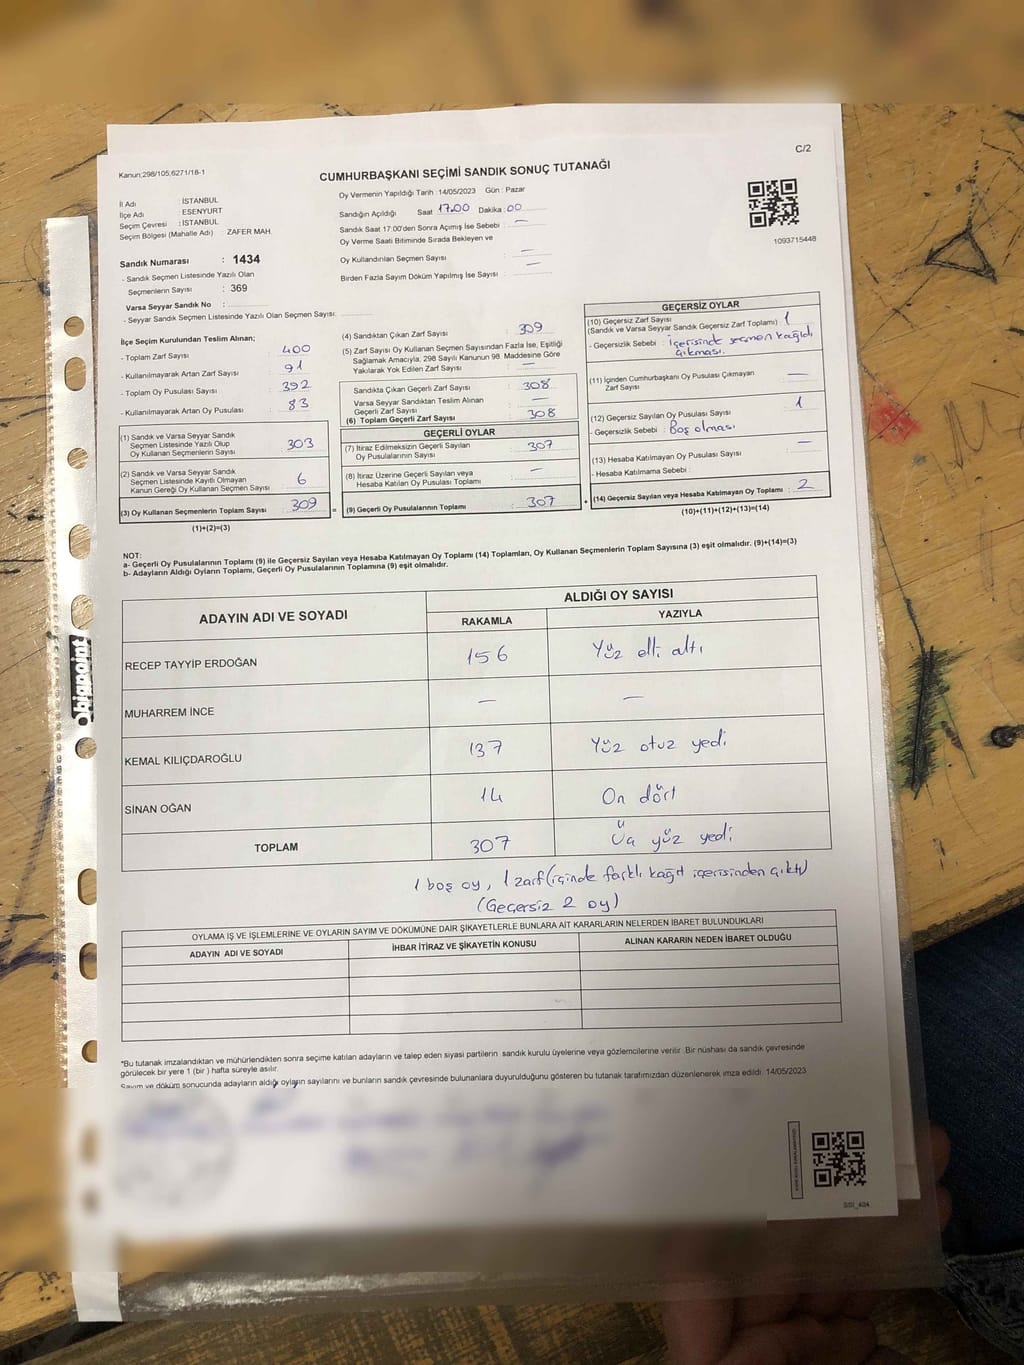 C/2
Kanun;298/105,6271/18-1
CUMHURBAŞKANI SEÇİMİ SANDIK SONUÇ TUTANAĞI
Oy Vermenin Yapıldığı Tarih :14/05/2023 Gün : Pazar
İl Adı : İSTANBUL
İlçe Adı : ESENYURT
Seçim Çevresi : İSTANBUL
Seçim Bölgesi (Mahalle Adı) ZAFER MAH.
Sandığın Açıldığı Saat 17.00 Dakika :00
Sandık Saat 17:00'den Sonra Açımış İse Sebebi : —
Oy Verme Saati Bitiminde Sırada Bekleyen ve
Oy Kullandırılan Seçmen Sayısı : —
Birden Fazla Sayım Döküm Yapılmış İse Sayısı : —
1093715448
Sandık Numarası : 1434
- Sandık Seçmen Listesinde Yazılı Olan
Seçmenlerin Sayısı : 369
Varsa Seyyar Sandık No :
- Seyyar Sandık Seçmen Listesinde Yazılı Olan Seçmen Sayısı:
İlçe Seçim Kurulundan Teslim Alınan;
- Toplam Zarf Sayısı : 400
- Kullanılmayarak Artan Zarf Sayısı : 91
- Toplam Oy Pusulası Sayısı : 392
- Kullanılmayarak Artan Oy Pusulası : 83
(1) Sandık ve Varsa Seyyar Sandık
Seçmen Listesinde Yazılı Olup
Oy Kullanan Seçmenlerin Sayısı : 303
(2) Sandık ve Varsa Seyyar Sandık
Seçmen Listesinde Kayıtlı Olmayan
Kanun Gereği Oy Kullanan Seçmen Sayısı : 6
(3) Oy Kullanan Seçmenlerin Toplam Sayısı : 309
(1)+(2)=(3)
(4) Sandıktan Çıkan Zarf Sayısı : 309
(5) Zarf Sayısı Oy Kullanan Seçmen Sayısından Fazla İse, Eşitliği
Sağlamak Amacıyla; 298 Sayılı Kanunun 98. Maddesine Göre
Yakılarak Yok Edilen Zarf Sayısı : —
Sandıkta Çıkan Geçerli Zarf Sayısı : 308
Varsa Seyyar Sandıktan Teslim Alınan
Geçerli Zarf Sayısı : —
(6) Toplam Geçerli Zarf Sayısı : 308
GEÇERLİ OYLAR
(7) İtiraz Edilmeksizin Geçerli Sayılan
Oy Pusulalarının Sayısı : 307
(8) İtiraz Üzerine Geçerli Sayılan veya
Hesaba Katılan Oy Pusulası Toplamı : —
= (9) Geçerli Oy Pusulalarının Toplamı : 307
GEÇERSİZ OYLAR
(10) Geçersiz Zarf Sayısı
(Sandık ve Varsa Seyyar Sandık Geçersiz Zarf Toplamı) : 1
- Geçersizlik Sebebi : İçerisinde seçmen kağıdı
çıkması.
(11) İçinden Cumhurbaşkanı Oy Pusulası Çıkmayan
Zarf Sayısı : —
(12) Geçersiz Sayılan Oy Pusulası Sayısı : 1
- Geçersizlik Sebebi : Boş olması
(13) Hesaba Katılmayan Oy Pusulası Sayısı : —
- Hesaba Katılmama Sebebi :
+ (14) Geçersiz Sayılan veya Hesaba Katılmayan Oy Toplamı : 2
(10)+(11)+(12)+(13)=(14)
NOT:
a- Geçerli Oy Pusulalarının Toplamı (9) ile Geçersiz Sayılan veya Hesaba Katılmayan Oy Toplamı (14) Toplamları, Oy Kullanan Seçmenlerin Toplam Sayısına (3) eşit olmalıdır. (9)+(14)=(3)
b- Adayların Aldığı Oyların Toplamı, Geçerli Oy Pusulalarının Toplamına (9) eşit olmalıdır.
ADAYIN ADI VE SOYADI
ALDIĞI OY SAYISI
RAKAMLA YAZIYLA
RECEP TAYYİP ERDOĞAN 156 Yüz elli altı
MUHARREM İNCE — —
KEMAL KILIÇDAROĞLU 137 Yüz otuz yedi
SİNAN OĞAN 14 On dört
TOPLAM 307 Üç yüz yedi
1 boş oy, 1 zarf (içinde farklı kağıt içerisinden çıktı)
(Geçersiz 2 oy)
OYLAMA İŞ VE İŞLEMLERİNE VE OYLARIN SAYIM VE DÖKÜMÜNE DAİR ŞİKAYETLERLE BUNLARA AİT KARARLARIN NELERDEN İBARET BULUNDUKLARI
ADAYIN ADI VE SOYADI İHBAR İTİRAZ VE ŞİKAYETİN KONUSU ALINAN KARARIN NEDEN İBARET OLDUĞU
*Bu tutanak imzalandıktan ve mühürlendikten sonra seçime katılan adayların ve talep eden siyasi partilerin sandık kurulu üyelerine veya gözlemcilerine verilir. Bir nüshası da sandık çevresinde
görülecek bir yere 1 (bir ) hafta süreyle asılır.
Sayım ve döküm sonucunda adayların aldığı oyların sayılarını ve bunların sandık çevresinde bulunanlara duyurulduğunu gösteren bu tutanak tarafımızdan düzenlenerek imza edildi. 14/05/2023
bigpoint